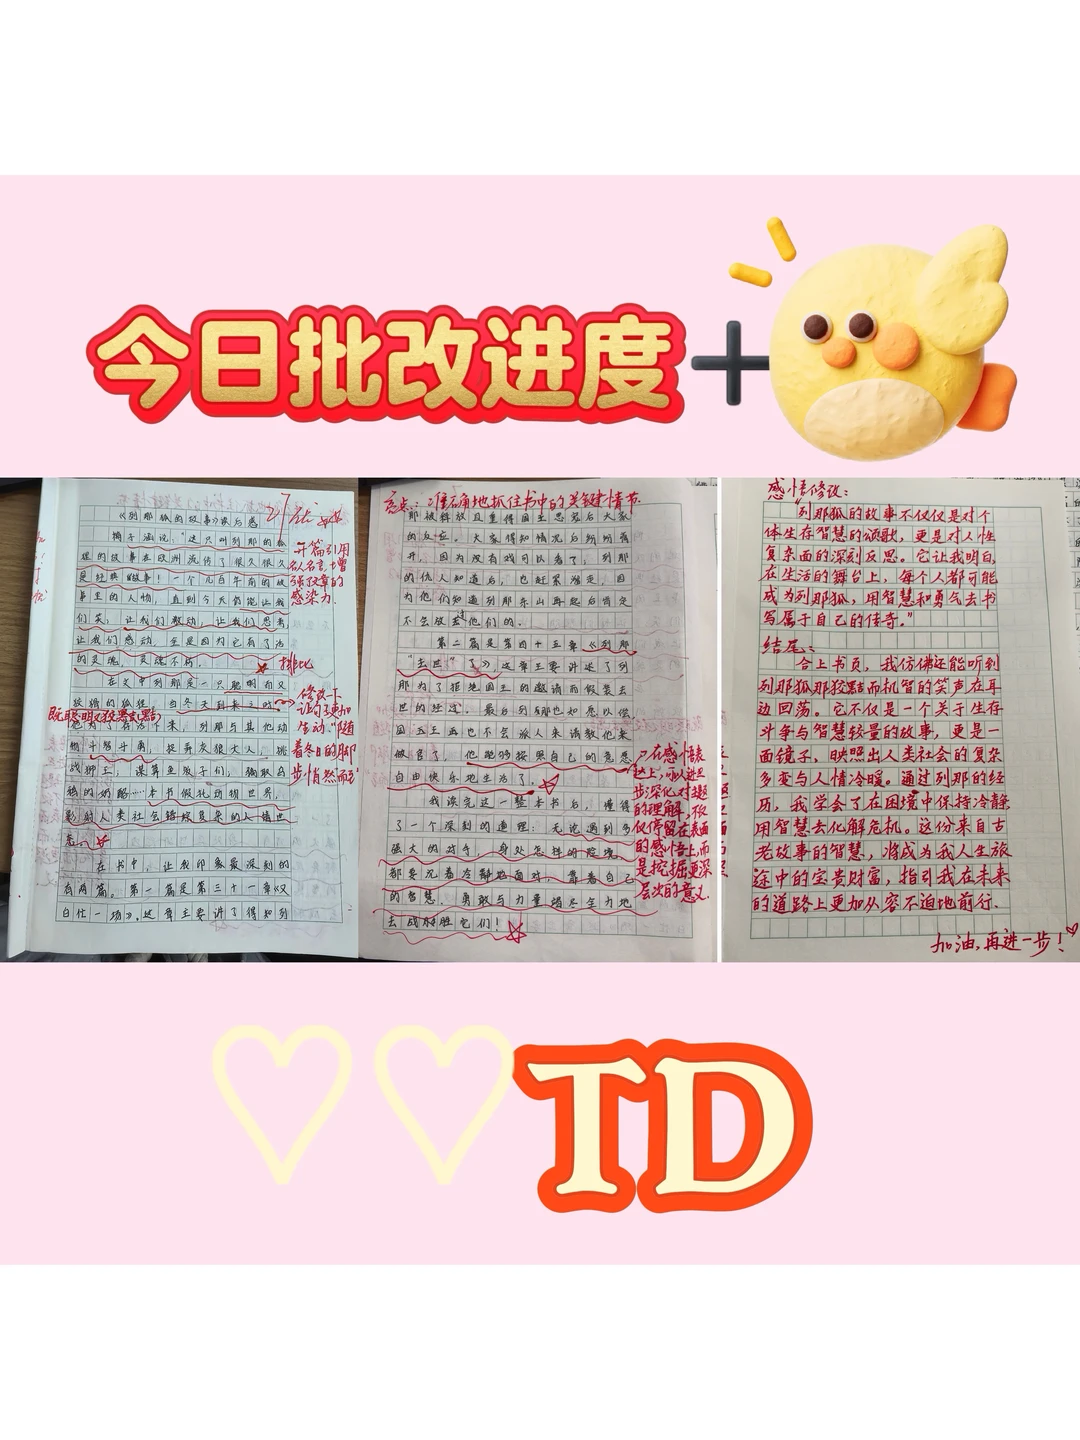 今日批改进度+
《列那狐的故事》读后感
梅子涵说:“这只叫列那的狐
狸的故事在欧洲流传了很久很久,
是经典的故事!一个几百年前的故
事里的人物,直到今天仍能让我
们笑,让我们激动,让我们思考,
让我们感动,全是因为它有了活
的灵魂,灵魂不朽。
排比
开篇引用
名人名言,增
强文章的
感染力.
在文中列那是一只聪明而又
狡猾的狐狸。当冬天到来之时,
既聪明又狡黠
修改下
让句子更加
生动:“随
着冬日的脚
步悄然而至
为了存活下来,列那与其他动
物斗智斗勇,捉弄灰狼大人,挑
战狮王,
本书假托动物世界,
影射人类社会错综复杂的人情世
在书中,让我印象最深刻的
有两篇。第一篇是第三十一章《又
白忙一场》。这章主要讲了得知列
亮点:准确地抓住书中的关键情节.
那被释放且重得国王恩宠后大家
的反应。大家得知情况后纷纷离
开,因为没有戏可以看了;列那
的仇人知道后,也赶紧溜走,因
为他们知道列那东山再起后肯定
不会放过他们的。
第二篇是第四十五章《列那
“去世”了》,这章主要讲述了列
那为了拒绝国王的邀请而假装去
世的经过。最后列那也如愿以偿,
国王再也不会派人来请教他来
做官了,他能够按照自己的意愿
自由快乐地生活了。
我读完这一整本书后,懂得
了一个深刻的道理:无论遇到多
强大的对手,身处怎样的险境,
都要沉着冷静地面对,靠着自己
的智慧、勇敢与力量竭尽全力地
去战胜它们!
在感悟表
达上,可以进一
步深化对主题
的理解,不仅
仅停留在表面
的感悟上,而
是挖掘更深
层次的意义.
感悟修改:
“列那狐的故事不仅仅是对个
体生存智慧的颂歌,更是对人性
复杂面的深刻反思。它让我明白,
在生活的舞台上,每个人都可能
成为列那狐,用智慧和勇气去书
写属于自己的传奇。”
结尾:
合上书页,我仿佛还能听到
列那狐那狡黠而机智的笑声在耳
边回荡。它不仅是一个关于生存
斗争与智慧较量的故事,更是一
面镜子,映照出人类社会的复杂
多变与人情冷暖。通过列那的经
历,我学会了在困境中保持冷静,
用智慧去化解危机。这份来自古
老故事的智慧,将成为我人生旅
途中的宝贵财富,指引我在未来
的道路上更加从容不迫地前行.
加油,再进一步!
TD